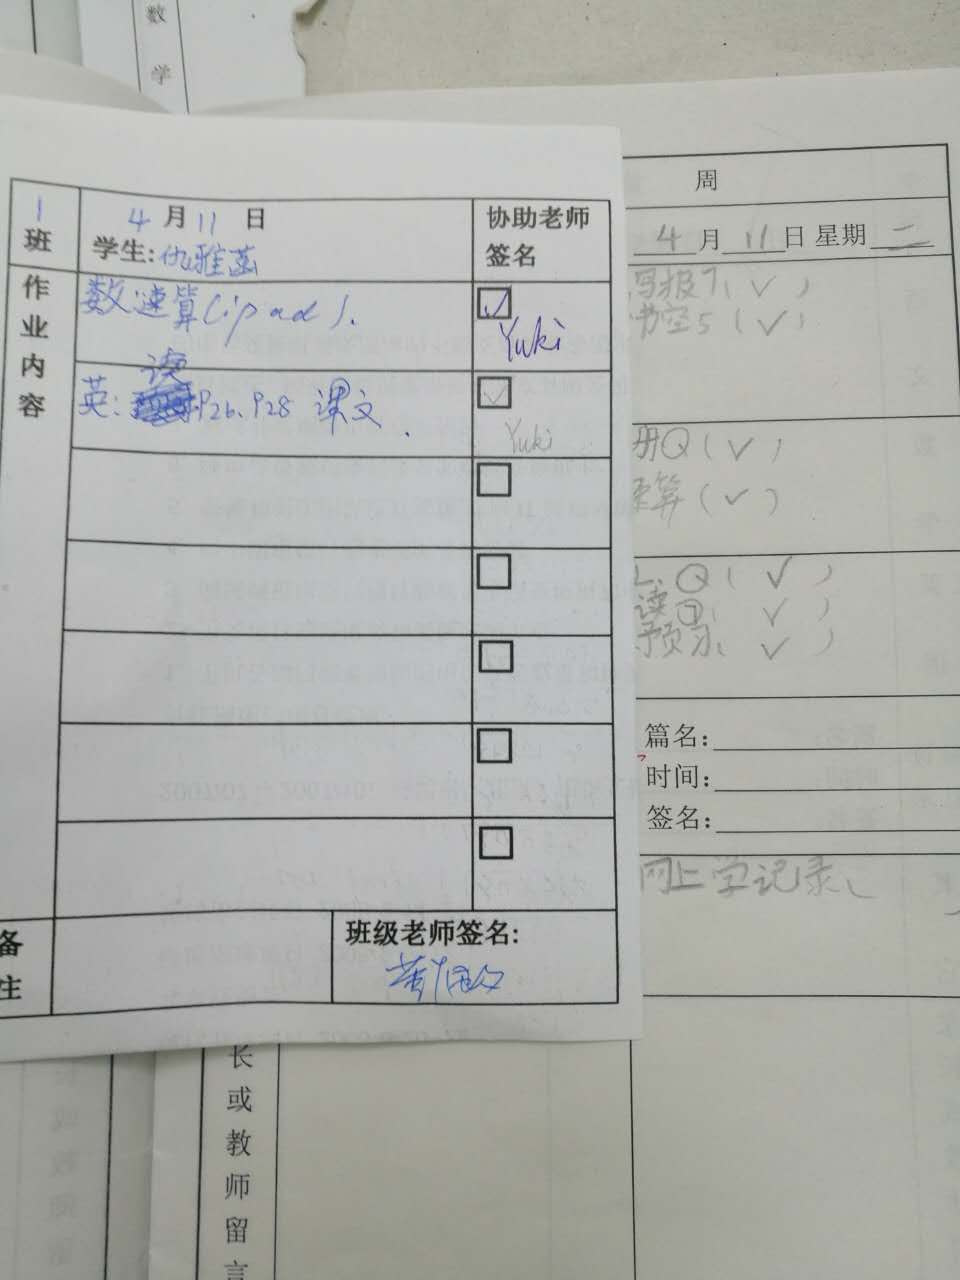 数
学
1
班
4 月 11 日
学生: 仇雅菡
协助老师
签名
作
业
内
容
数: 速算(ipad).
Yuki
读
英: P26、P28 课文.
Yuki
备
注
班级老师签名:
周
4月 11日 星期二
写报7、(√)
书空5 (√)
册Q(√)
速算(√)
Q(√)
读⑦、 √)
预习、 √)
篇名:
时间:
签名:
网上学记录、
长
或
教
师
留
言